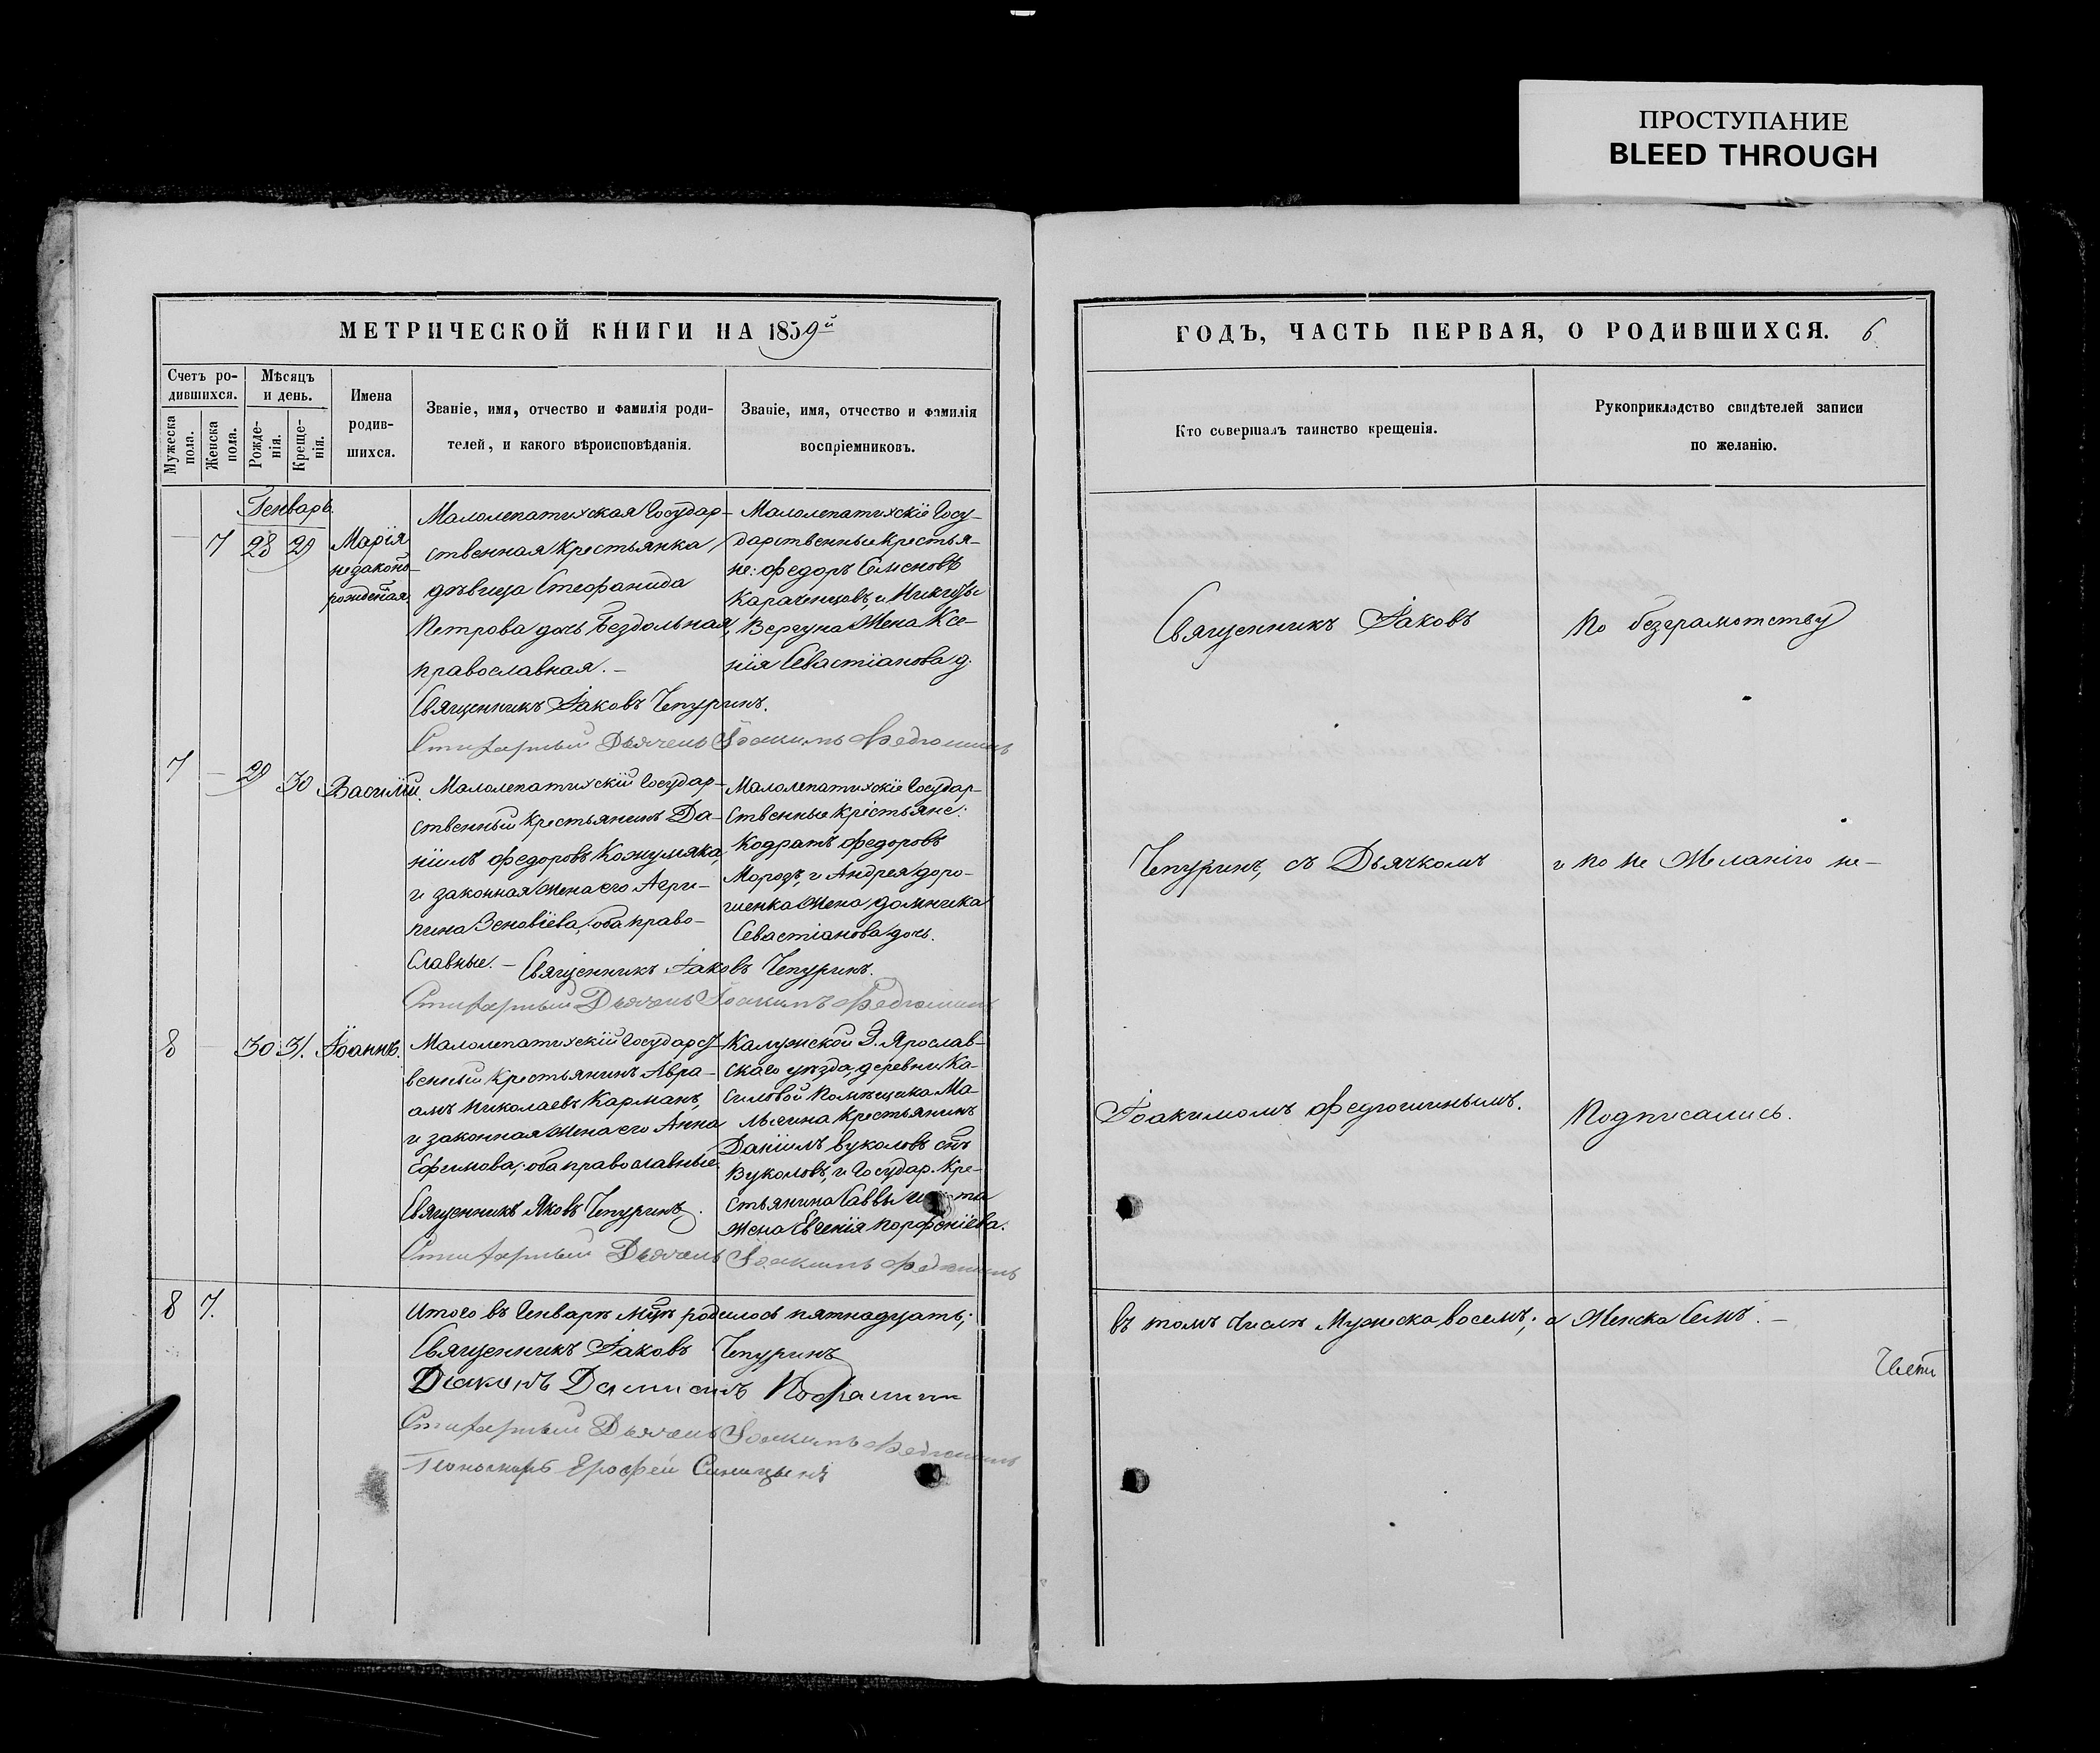 ПРОСТУПАНИЕ
BLEED THROUGH
МЕТРИЧЕСКОЙ КНИГИ НА 1859й
Счетъ ро-
дившихся.
Мужеска
пола.
Женска
пола.
Мѣсяцъ
и день.
Рожде-
нія.
Креще-
нія.
Имена
родив-
шихся.
Званіе, имя, отчество и фамилія роди-
телей, и какого вѣроисповѣданія.
Званіе, имя, отчество и фамилія
воспріемниковъ.
Генварь.
— 7 28 29
Марія
незаконо-
рожденная.
Малолепатихская Государ-
ственная Крестьянка,
дѣвица Стефанида
Петрова дочь Бездольная,
православная. —
Священникъ Іаковъ Чепуринъ.
Стихарный Дьячекъ Іоакимъ Федюшинъ
Малолепатихскіе Госу-
дарственные Крестья-
не: Федоръ Семеновъ
Караченцовъ, и Никиты
Вергуна Жена Ксе-
нія Севастіанова д.
7 — 29 30 Василій.
Малолепатихскій Государ-
ственный Крестьянинъ Да-
ніилъ Федоровъ Кожумяка
и законная Жена его Агри-
пина Зеновіева, оба право-
славные. — Священникъ Іаковъ Чепуринъ.
Стихарный Дьячекъ Іоакимъ Федюшинъ
Малолепатихскіе Государ-
ственные Крестьяне:
Кодратъ Федоровъ
Морозъ, и Андрея Доро-
шенка Жена Домника
Севастіанова дочь.
8 — 30 31. Іоаннъ.
Малолепатихскій Государст-
венный Крестьянинъ Авра-
амъ Николаевъ Карманъ,
и законная Жена его Анна
Ефимова, оба православные.
Священникъ Яковъ Чепуринъ.
Стихарный Дьячекъ Іоакимъ Федюшинъ
Калужской Г. Ярослав-
скаго уѣзда, деревни Ка-
силовой Помѣщика Ма-
Крестьянинъ
Даніилъ Вуколовъ снъ
Вуколовъ, и Государ. Кре-
стьянина Саввы
Жена Евгенія Порфеніева.
8 7.
Итого въ Генварѣ Мцѣ родилось пятнадцать;
Священникъ Іаковъ Чепуринъ
Діаконъ Даміанъ
Стихарный Дьячекъ Іоакимъ Федюшинъ
Пономарь Ерофей Синицынъ
ГОДЪ, ЧАСТЬ ПЕРВАЯ, О РОДИВШИХСЯ. 6.
Кто совершалъ таинство крещенія.
Рукоприкладство свидѣтелей записи
по желанію.
Священникъ Іаковъ
По безграмотству
Чепуринъ, съ Дьячкомъ
и по не Желанію не—
Іоакимомъ Федюшинымъ.
Подписались.
въ томъ числѣ Мужеска восемъ; а Женска Семъ. —